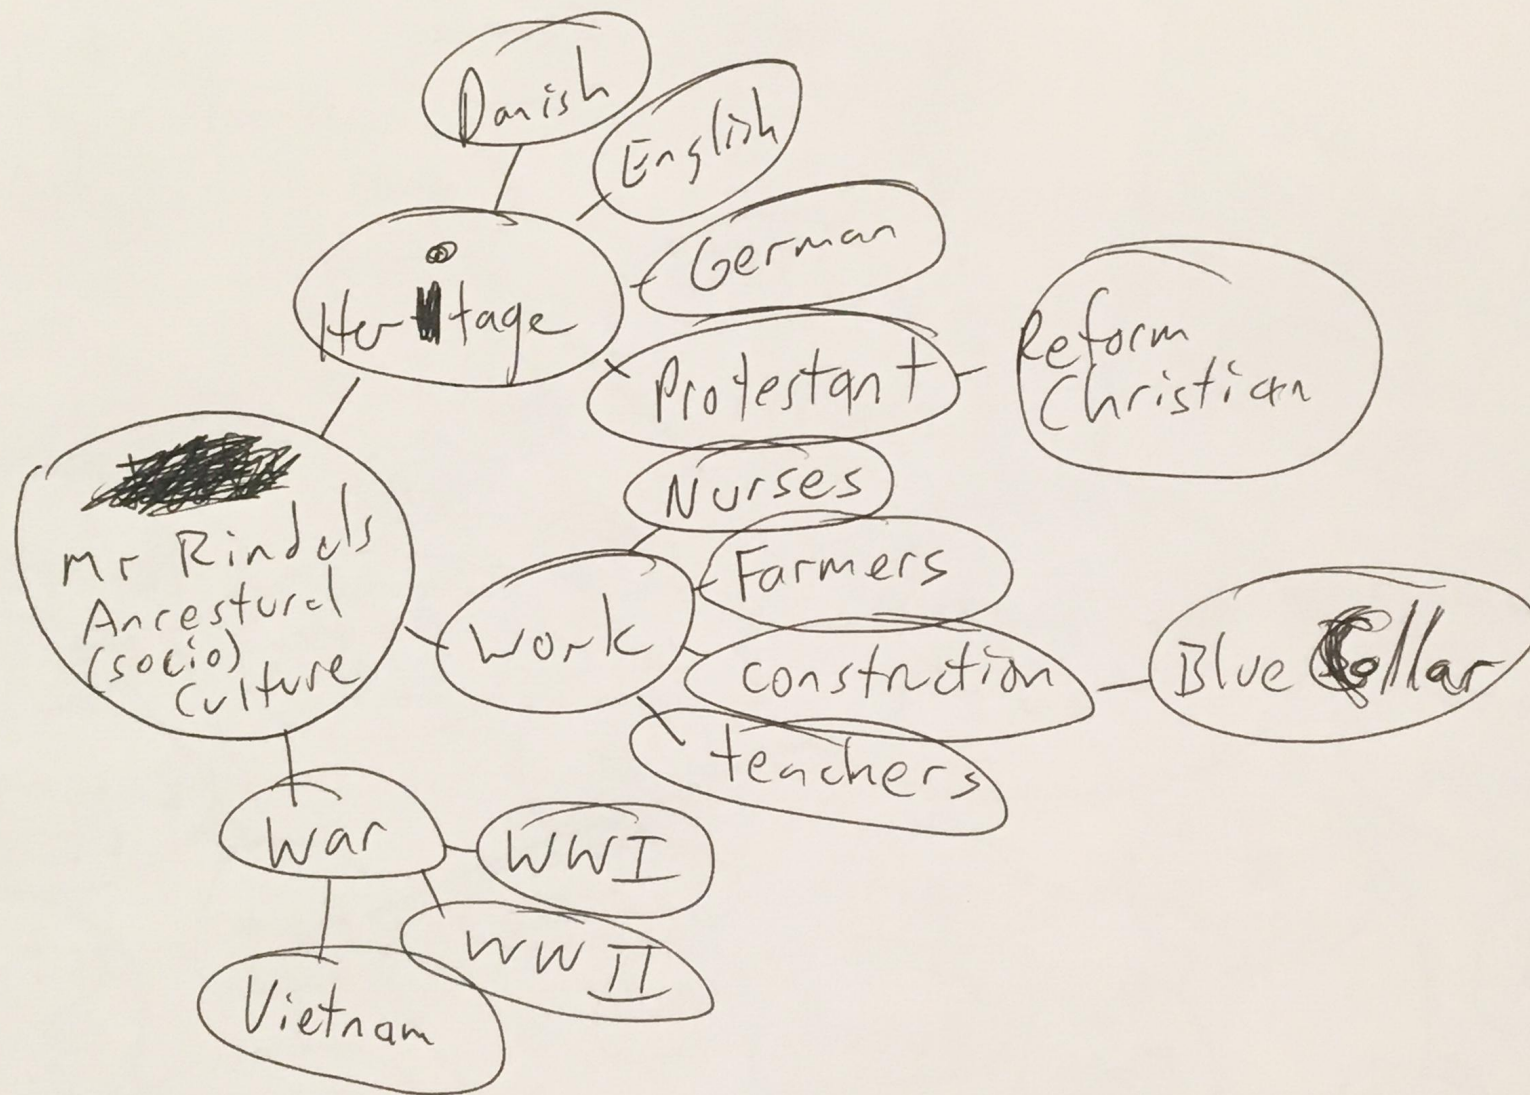 Danish
English
Heritage
German
Protestant
Reform
Christian
Mr Rindels
Ancestural
(socio)
Culture
Work
Nurses
Farmers
construction
Blue Collar
teachers
War
WWI
WW II
Vietnam